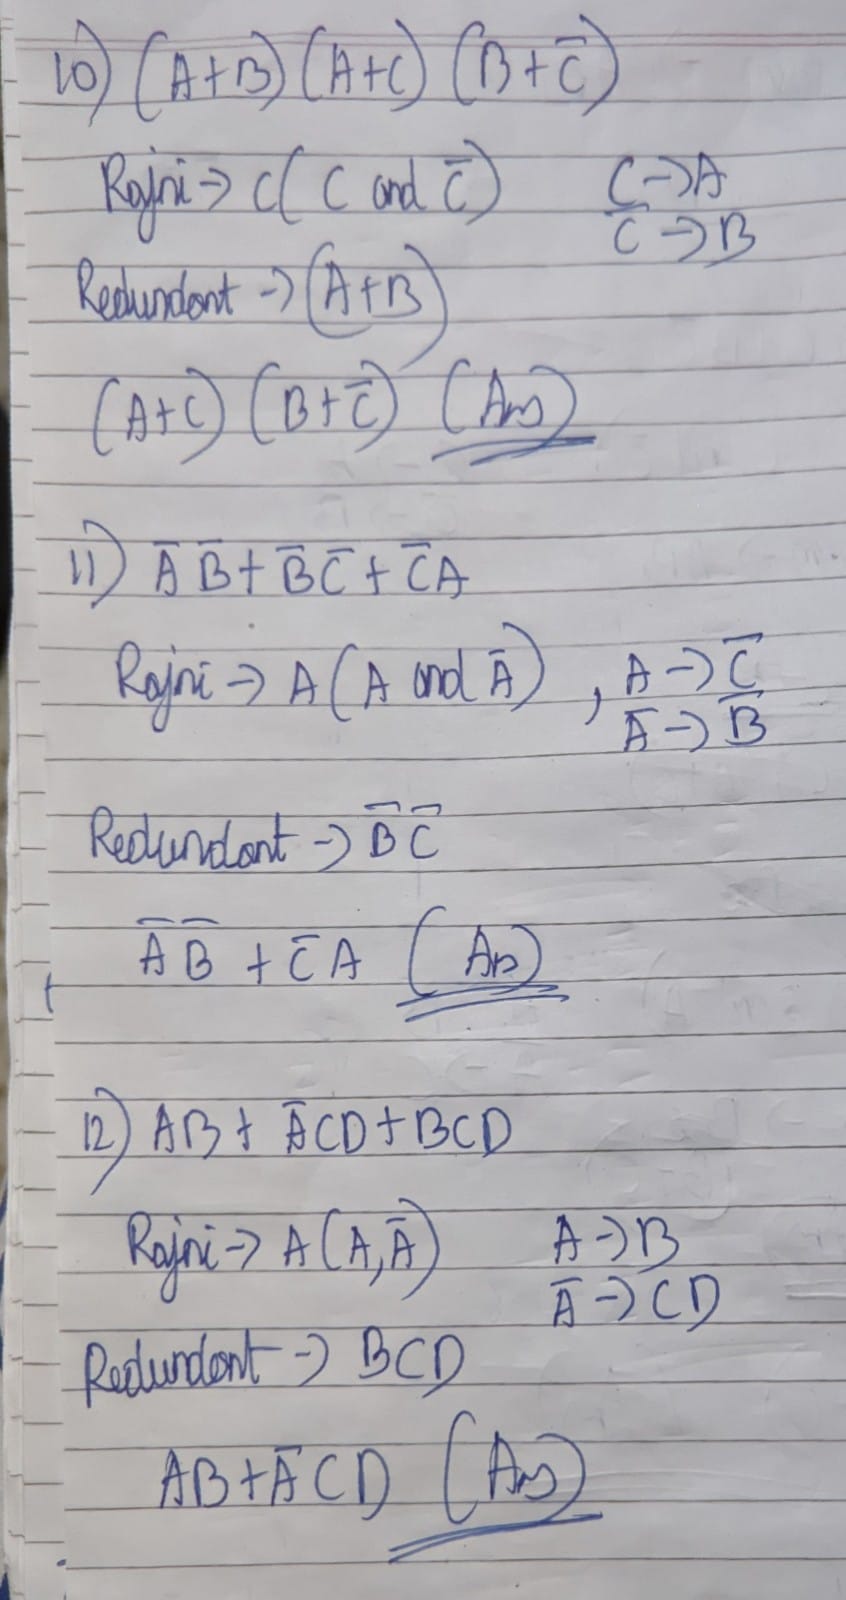 10) (A+B) (A+C) (B+C̅)
Rajni → C( C and C̅) C→A
C̅→B
Redundant → (A+B)
(A+C) (B+C̅) (Ans)
11) A̅ B̅ + B̅ C̅ + C̅A
Rajni → A (A and A̅) , A → C̅
A̅ → B̅
Redundant → B̅ C̅
A̅ B̅ + C̅ A (Ans)
12) AB + A̅CD + BCD
Rajni → A (A, A̅) A→B
A̅ → CD
Redundant → BCD
AB + A̅CD (Ans)